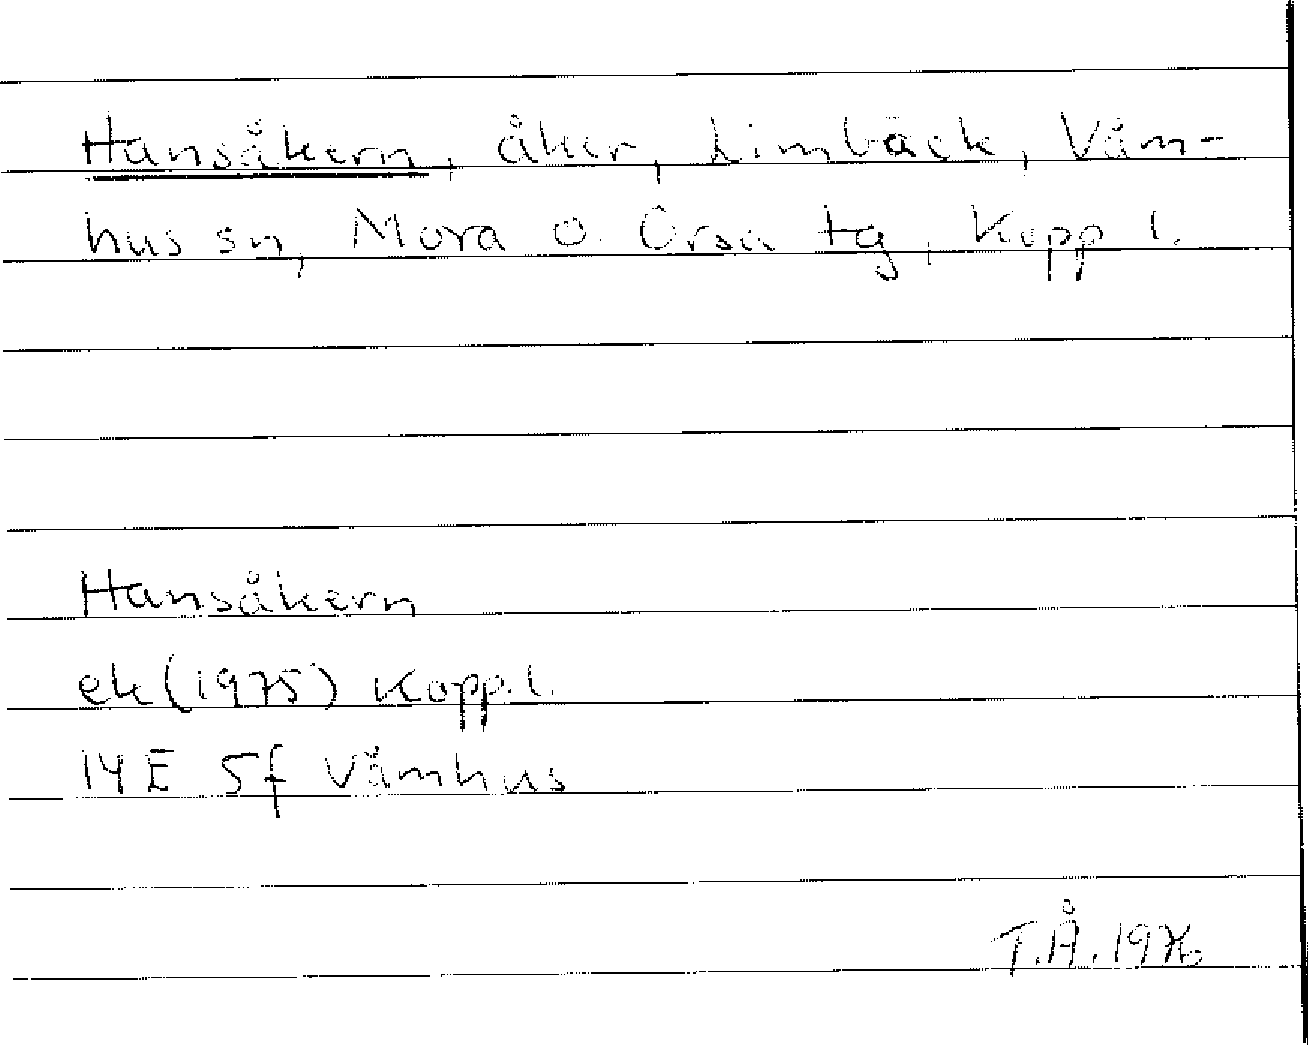 Hansåkern, åker, Limbäck, Våm-
hus sn, Mora o. Orsa tg, Kopp l.
Hansåkern
ek (1975) Kopp. l.
14E 5f Våmhus
T.Å. 1976